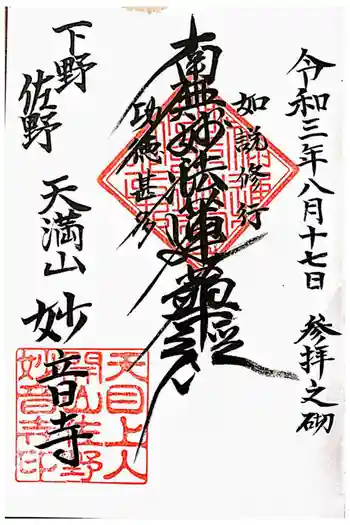 令和三年八月十七日 参拝之砌
如説修行
南無妙法蓮華経
功徳甚多
下野
佐野
天満山 妙音寺
天目上人
開山佐野
妙音寺印